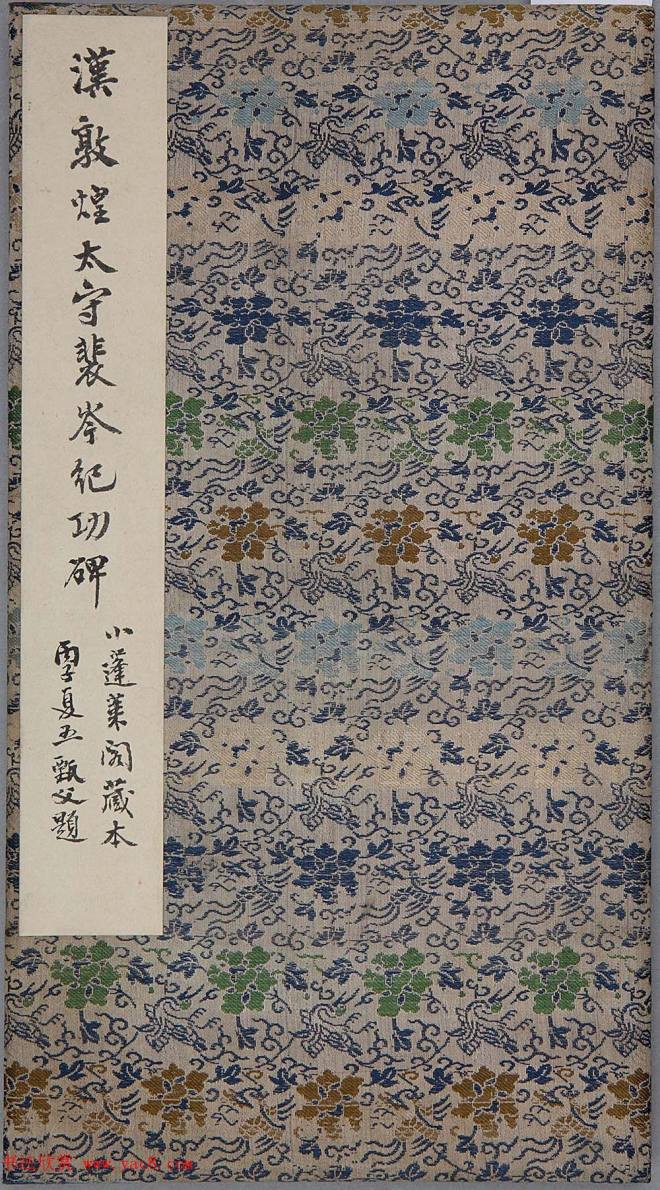 漢敦煌太守裴岑紀功碑
小蓬萊閣藏本
丙子夏五甄父題
书法欣赏 www.yac8.com